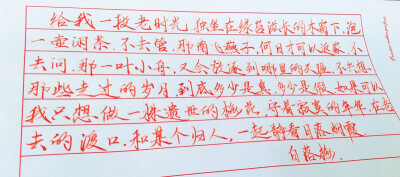 给我一段老时光,独坐在绿苔滋长的木窗下,泡
一壶闲茶,不去管,那南飞燕子,何日才可以返家,不
去问,那一叶小舟,又会放逐到哪里的天涯,不去想,
那些走过的岁月,到底多少是真,多少是假,如果可以
我只想做一株遗世的梅花,守着寂寞的年华,在老
去的渡口,和某个归人,一起静看日落烟霞
白落梅.